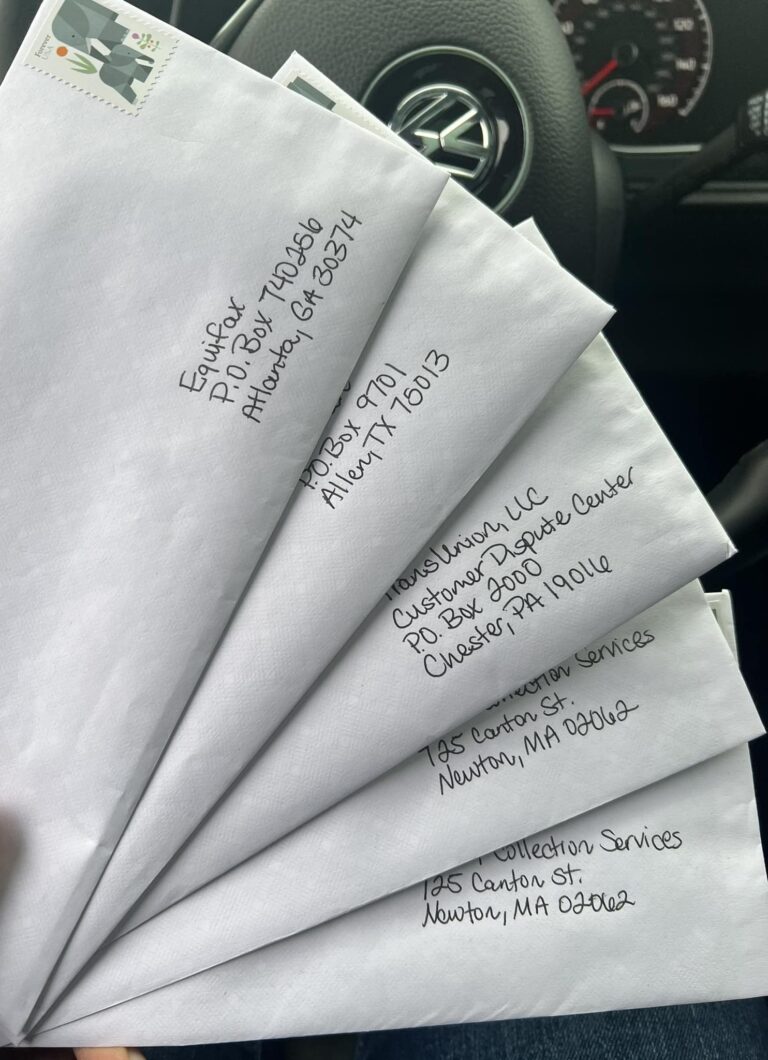 Forever
USA
Equifax
P.O. Box 740256
Atlanta, GA 30374
P.O. Box 9701
Allen, TX 75013
TransUnion, LLC
Customer Dispute Center
P.O. Box 2000
Chester, PA 19016
Collection Services
725 Canton St.
Newton, MA 02062
Collection Services
725 Canton St.
Newton, MA 02062
120
140
160